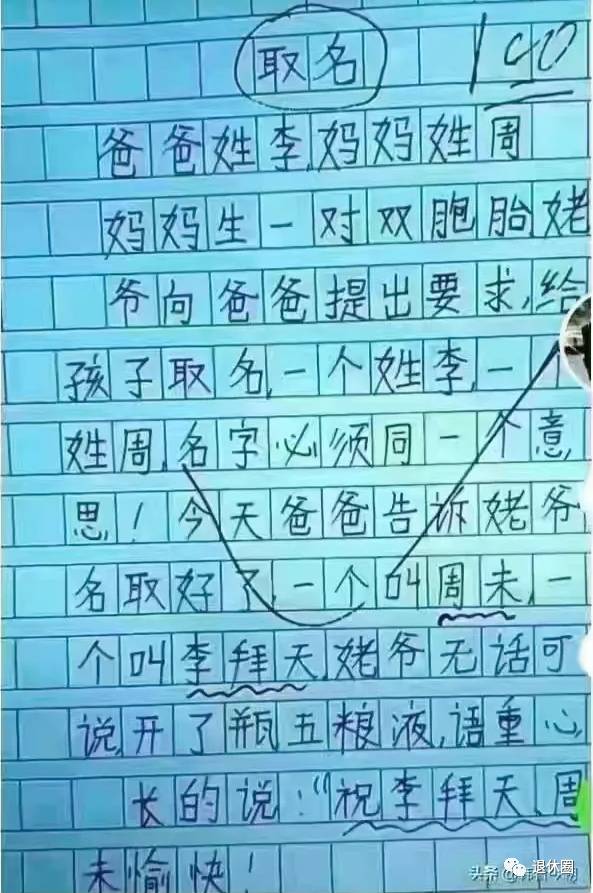 取名 100
爸爸姓李,妈妈姓周
妈妈生一对双胞胎姥
爷向爸爸提出要求,给
孩子取名,一个姓李,一个
姓周,名字必须同一个意
思!今天爸爸告诉姥爷
名取好了,一个叫周末,一
个叫李拜天,姥爷无话可
说,开了瓶五粮液,语重心
长的说:“祝李拜天、周
末愉快!
退休圈